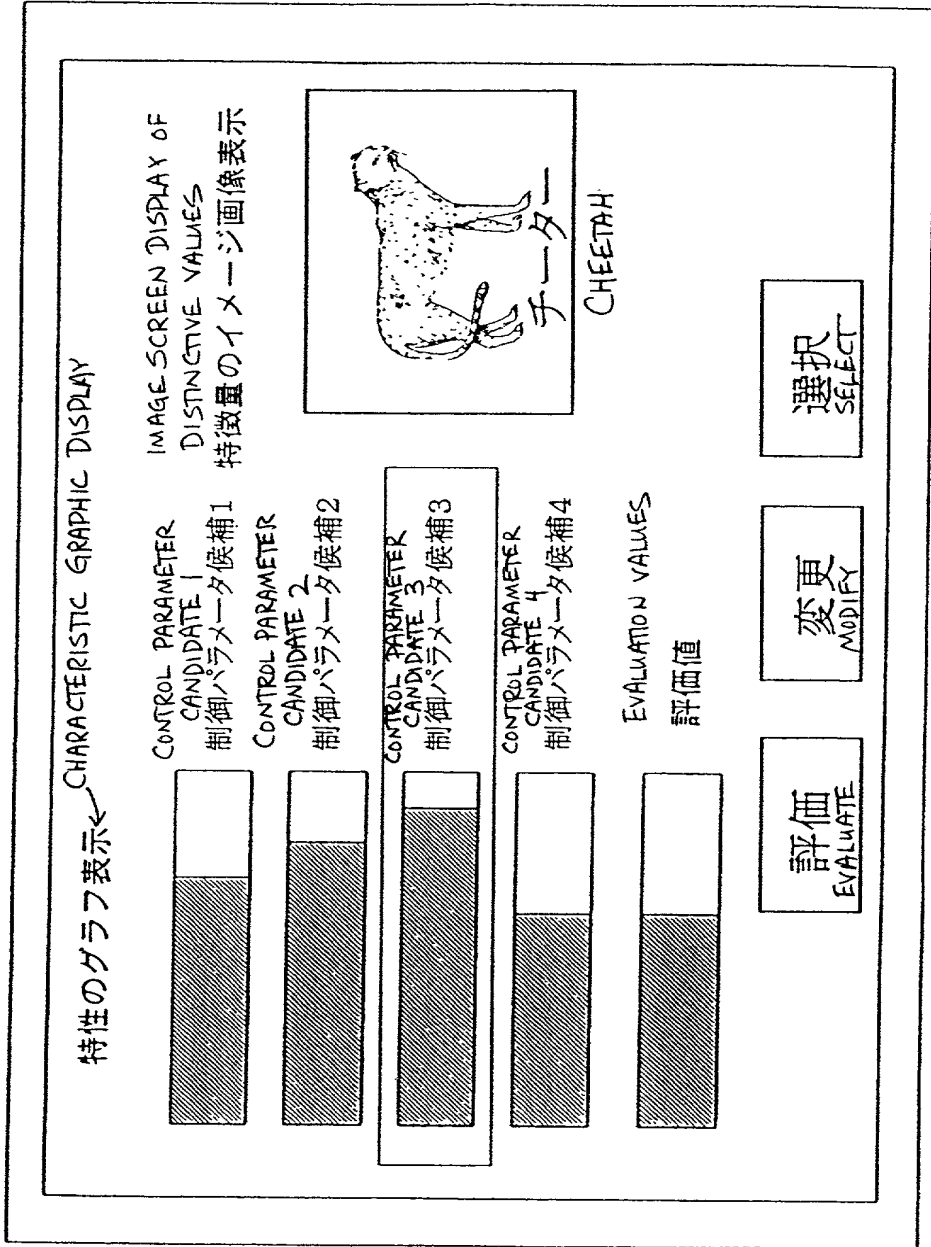 特性のグラフ表示
CHARACTERISTIC GRAPHIC DISPLAY
CONTROL PARAMETER
CANDIDATE 1
制御パラメータ候補1
CONTROL PARAMETER
CANDIDATE 2
制御パラメータ候補2
CONTROL PARAMETER
CANDIDATE 3
制御パラメータ候補3
CONTROL PARAMETER
CANDIDATE 4
制御パラメータ候補4
EVALUATION VALUES
評価値
IMAGE SCREEN DISPLAY OF
DISTINCTIVE VALUES
特徴量のイメージ画像表示
チーター
CHEETAH
評価
EVALUATE
変更
MODIFY
選択
SELECT